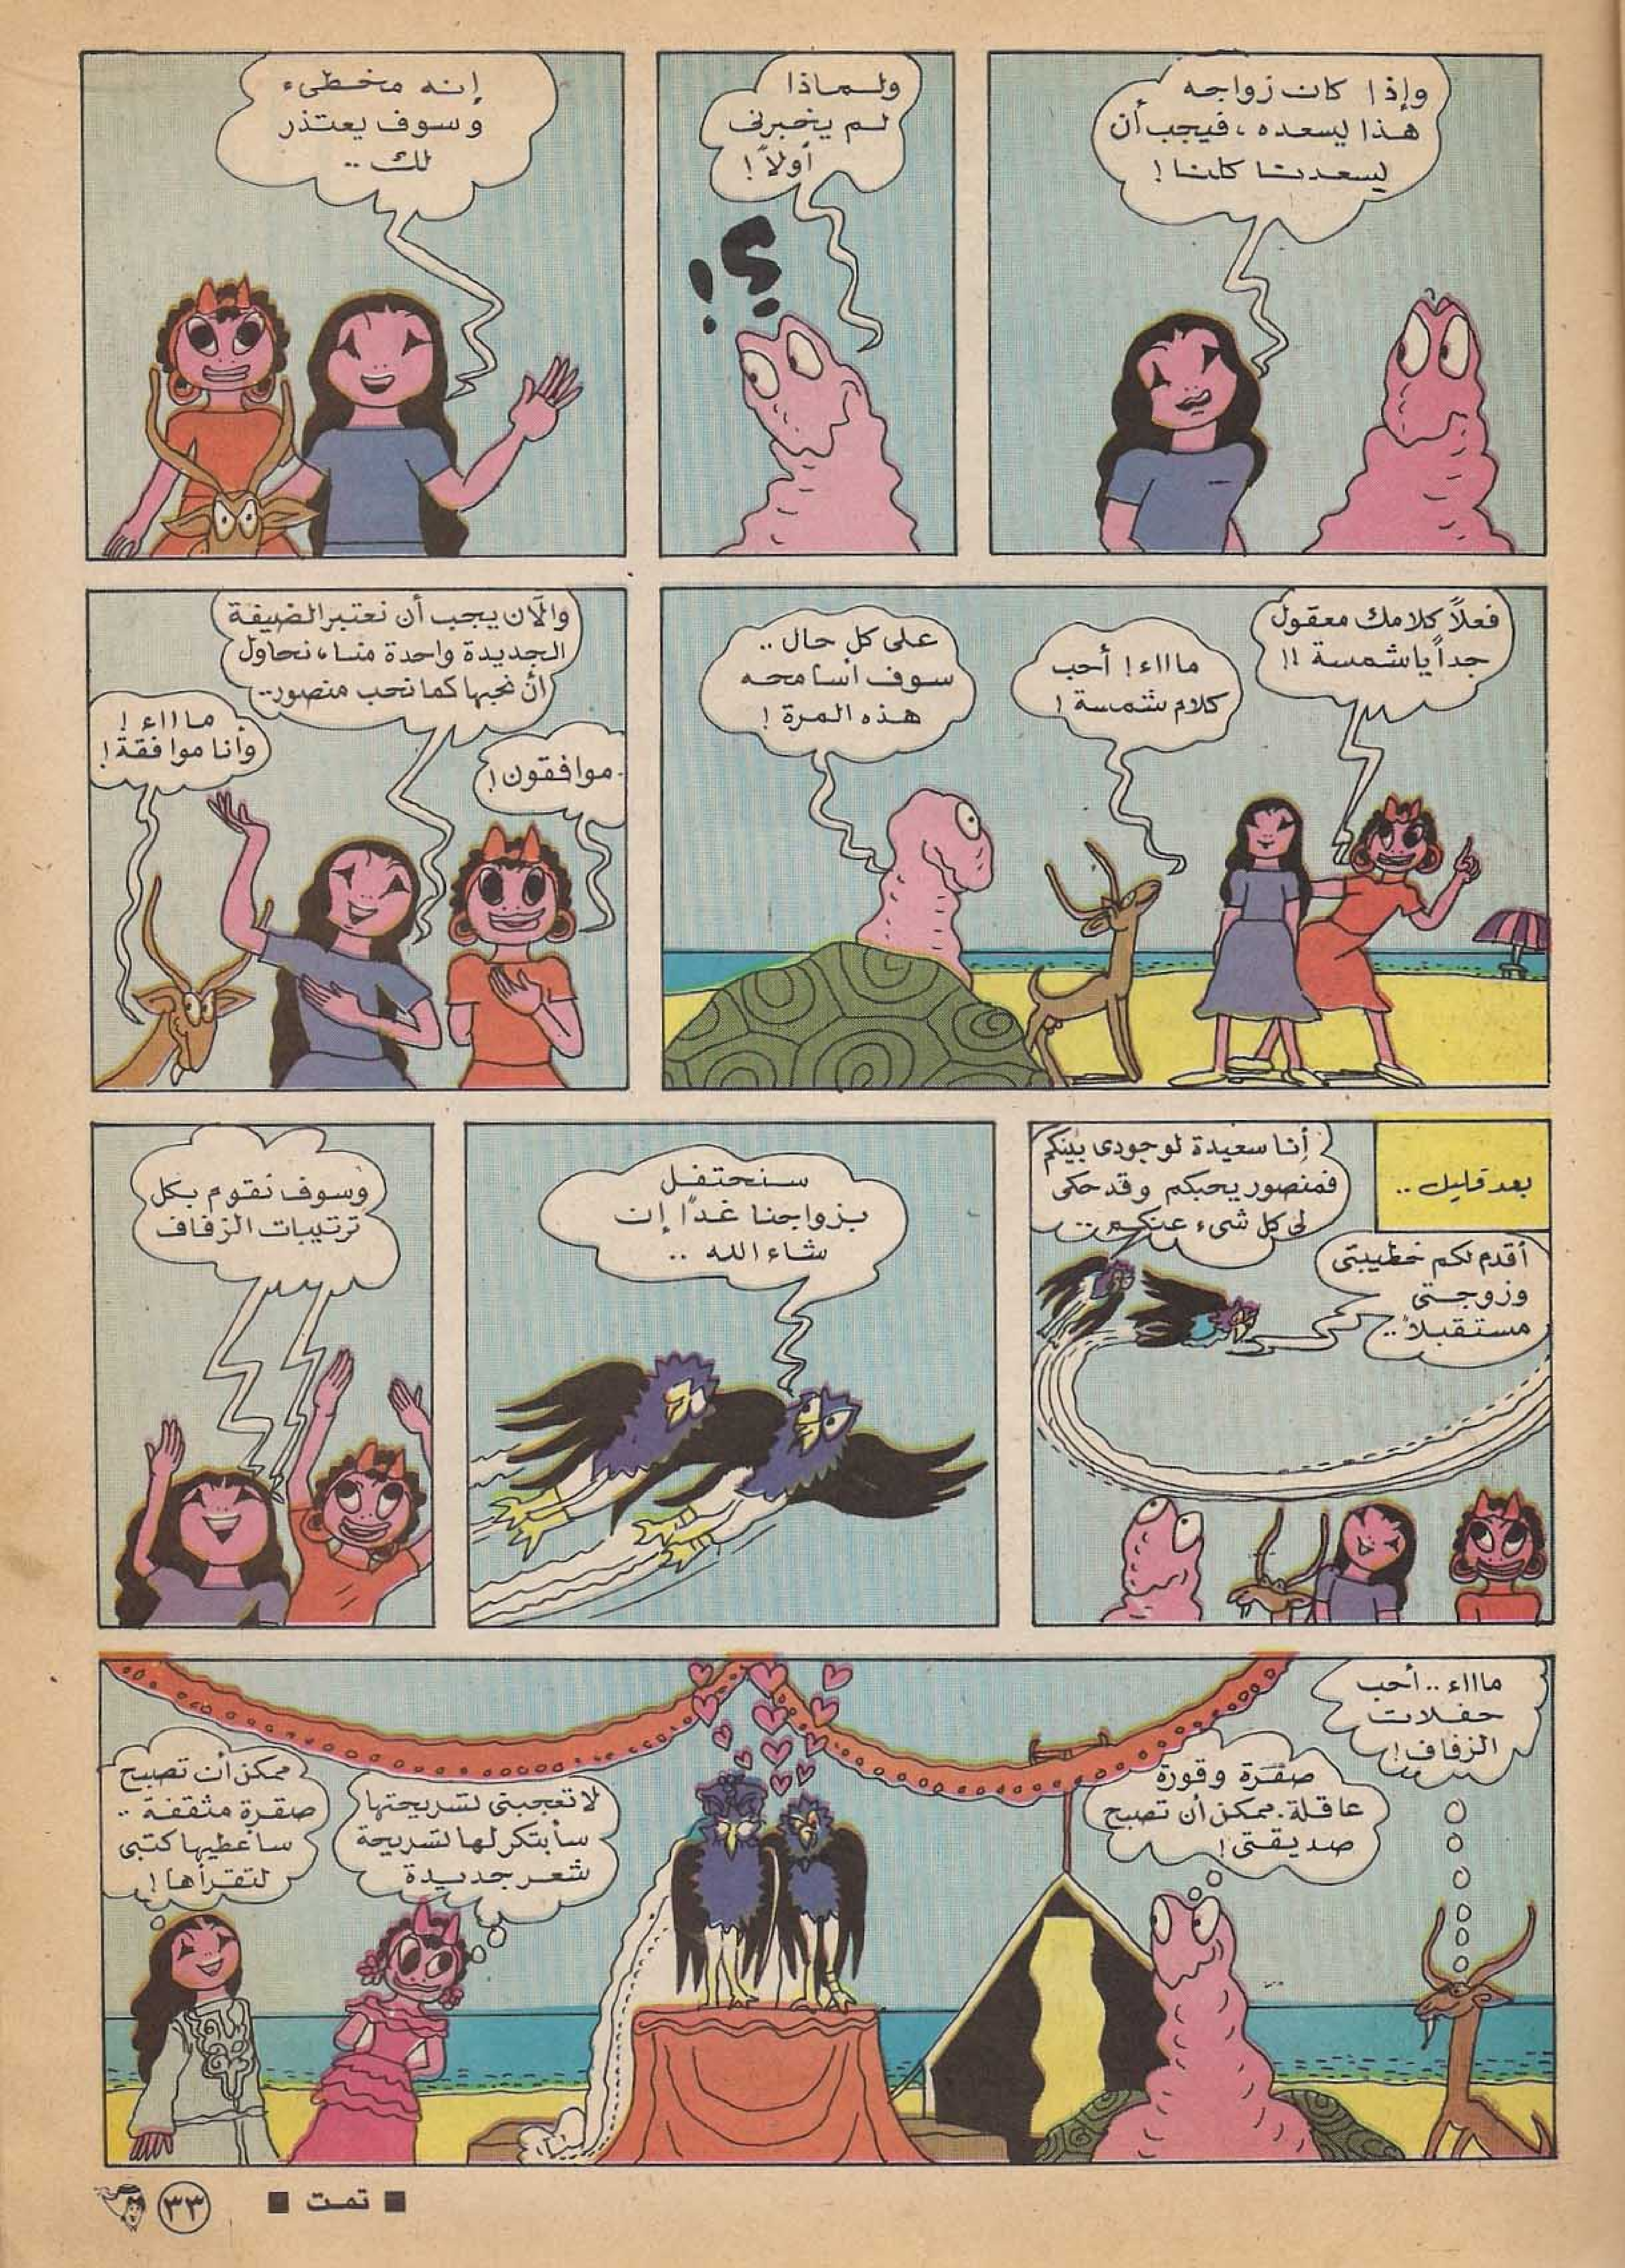 وإذا كان زواجه
هذا يسعده، فيجب أن
يسعدنا كلنا!
ولماذا
لم يخبرنى
أولاً!
؟!
إنه مخطىء
وسوف يعتذر
لك..
فعلاً كلامك معقول
جداً ياشمسة!!
ماااء! أحب
كلام شمسة!
على كل حال..
سوف أسامحه
هذه المرة!
والآن يجب أن نعتبر الضيفة
الجديدة واحدة منا، نحاول
أن نحبها كما نحب منصور..
موافقون!
ماااء!
وأنا موافقة!
بعد قليل..
أقدم لكم خطيبتى
وزوجتى
مستقبلاً..
أنا سعيدة لوجودى بينكم
فمنصور يحبكم وقد حكى
لى كل شىء عنكم..
سنحتفل
بزواجنا غداً إن
شاء الله..
وسوف نقوم بكل
ترتيبات الزفاف
ماااء.. أحب
حفلات
الزفاف!
صقرة وقورة
عاقلة. ممكن أن تصبح
صديقتى!
لا تعجبنى تسريحتها
سأبتكر لها تسريحة
شعر جديدة
ممكن أن تصبح
صقرة مثقفة..
سأعطيها كتبى
لتقرأها!
■ تمت ■
٣٣